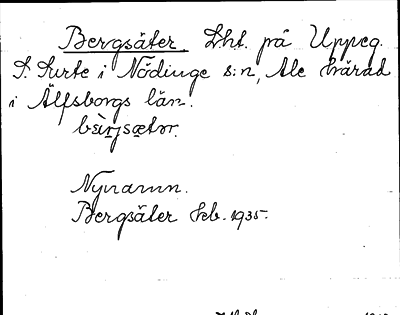 Bergsäter. Lht. på Uppeg.
S. Surte i Nödinge s:n, Ale härad
i Älfsborgs län.
Nynamn.
Bergsäter feb. 1935.